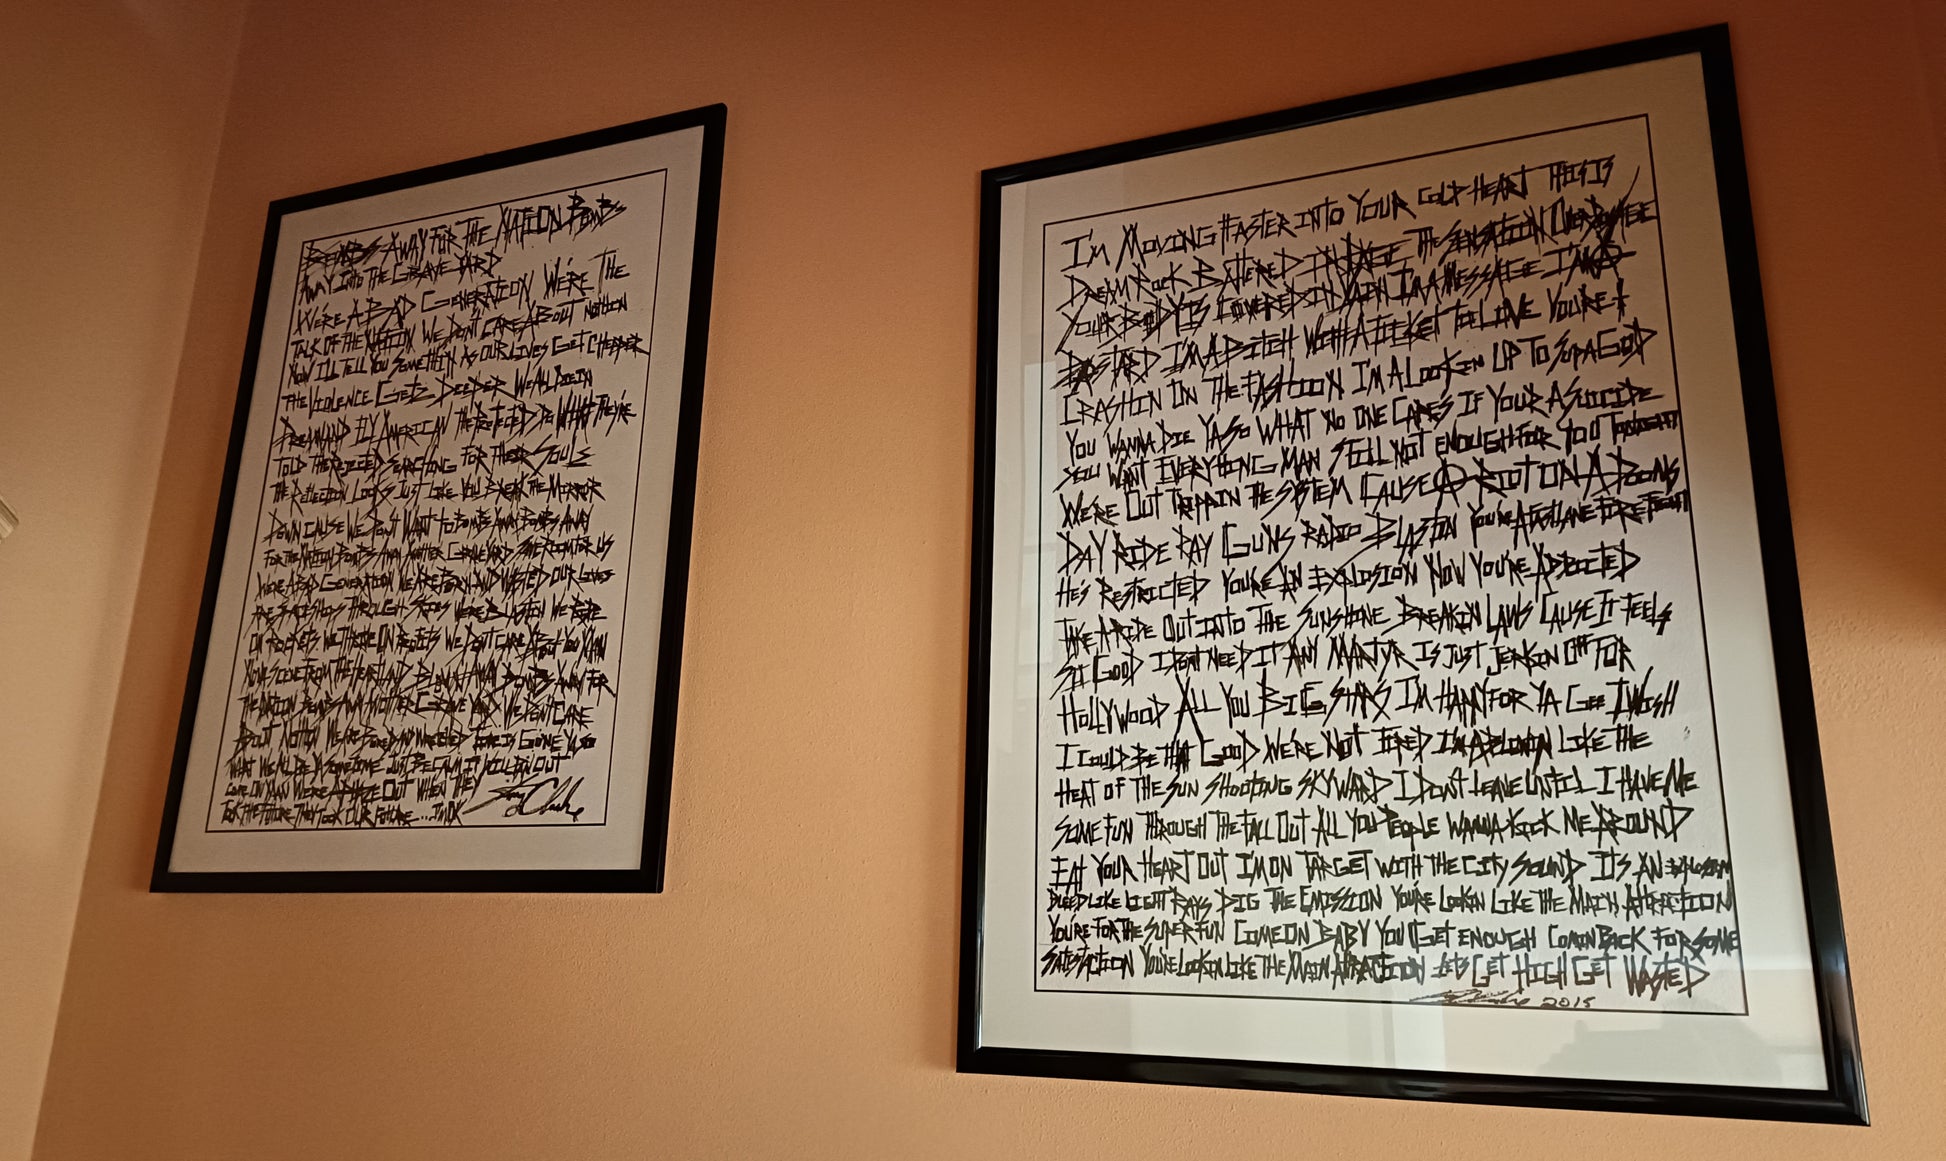 BOMBS AWAY FOR THE NATION BOMBS
AWAY INTO THE GRAVE YARD
WE'RE A BAD GENERATION WE'RE THE
TALK OF THE NATION WE DONT CARE ABOUT NOTHIN
NOW I'LL TELL YOU SOMETHIN AS OUR LIVES GET CHEPPER
THE VIOLENCE GETZ DEEPER WE ALL DIE IN
DREAMLAND FLY AMERICAN THE PROTECTED DO WHAT THEY'RE
TOLD THE REJECTED SEARCHING FOR THEIR SOULS
THE REFLECTION LOOKS JUST LIKE YOU BREAK THE MIRROR
DOWN CAUSE WE DON'T WANT TO BOMBS AWAY BOMBS AWAY
FOR THE NATION BOMBS AWAY ANOTHER GRAVE YARD SAVE ROOM FOR US
WE'RE A BAD GENERATION WE ARE BORN AND WASTED OUR LIVES
ARE SPACESHIPS THROUGH STARS WE'RE BLASTIN WE RIDE
ON ROCKETS WE THRIVE ON PROFITS WE DON'T CARE ABOUT YOU MAN
FROM THE HEART AND BLOWN AWAY BOMBS AWAY FOR
THE NATION BOMBS AWAY ANOTHER GRAVE YARD WE DON'T CARE
ABOUT NOTHIN WE ARE BORED AND WRECKED TIME IS GONE YA SO
WHAT WE ALL DIE SOMETIME JUST BECAUSE IT
COME ON MAN WE'RE A PHAZE OUT WHEN THEY
TOOK THE FUTURE THEY TOOK OUR FUTURE....
I'M MOVING FASTER INTO YOUR COLD HEART THIS IS
DREAM ROCK BATTERED IN THE SENSATION OVERDOSAGE
YOUR BODY IS COVERED IN I'M A MESSAGE I'M A
BASTARD I'M A BITCH WITH A TICKET TO LIVE YOU'RE A
CRASHIN ON THE FASHION I'M A LOOKIN UP TO SUPA GOD
YOU WANNA DIE YA SO WHAT NO ONE CARES IF YOUR A SUICIDE
YOU WANT EVERYTHING MAN STILL NOT ENOUGH FOR YOU TONIGHT
WE'RE OUT TRIPPIN THE SYSTEM CAUSE A RIOT ON A DOOMS
DAY RIDE RAY GUNS RADIO BLASTIN YOU'RE A
HE'S RESTRICTED YOU'RE AN EXPLOSION NOW YOU'RE ADDICTED
TAKE A RIDE OUT INTO THE SUNSHINE BREAKIN LAWS CAUSE IT FEELS
SO GOOD I DONT NEED IT ANY MARTYR IS JUST JERKIN OFF FOR
HOLLYWOOD ALL YOU BIG STARS I'M HAPPY FOR YA GEE I WISH
I COULD BE THAT GOOD WE'RE NOT TIRED I'M A BLOWIN LIKE THE
HEAT OF THE SUN SHOOTING SKYWARD I DON'T LEAVE UNTIL I HAVE ME
SOME FUN THROUGH THE FALL OUT ALL YOU PEOPLE WANNA KICK ME AROUND
EAT YOUR HEART OUT I'M ON TARGET WITH THE CITY SOUND IT'S AN EXPLOSION
BLEED LIKE LIGHT RAYS DIG THE EMISSION YOU'RE LOOKIN LIKE THE MAIN ATTRACTION
YOU'RE FOR THE SUPER FUN COME ON BABY YOU GET ENOUGH COMIN BACK FOR SOME
SATISFACTION YOU'RE LOOKIN LIKE THE MAIN ATTRACTION LETS GET HIGH GET WASTED
2015